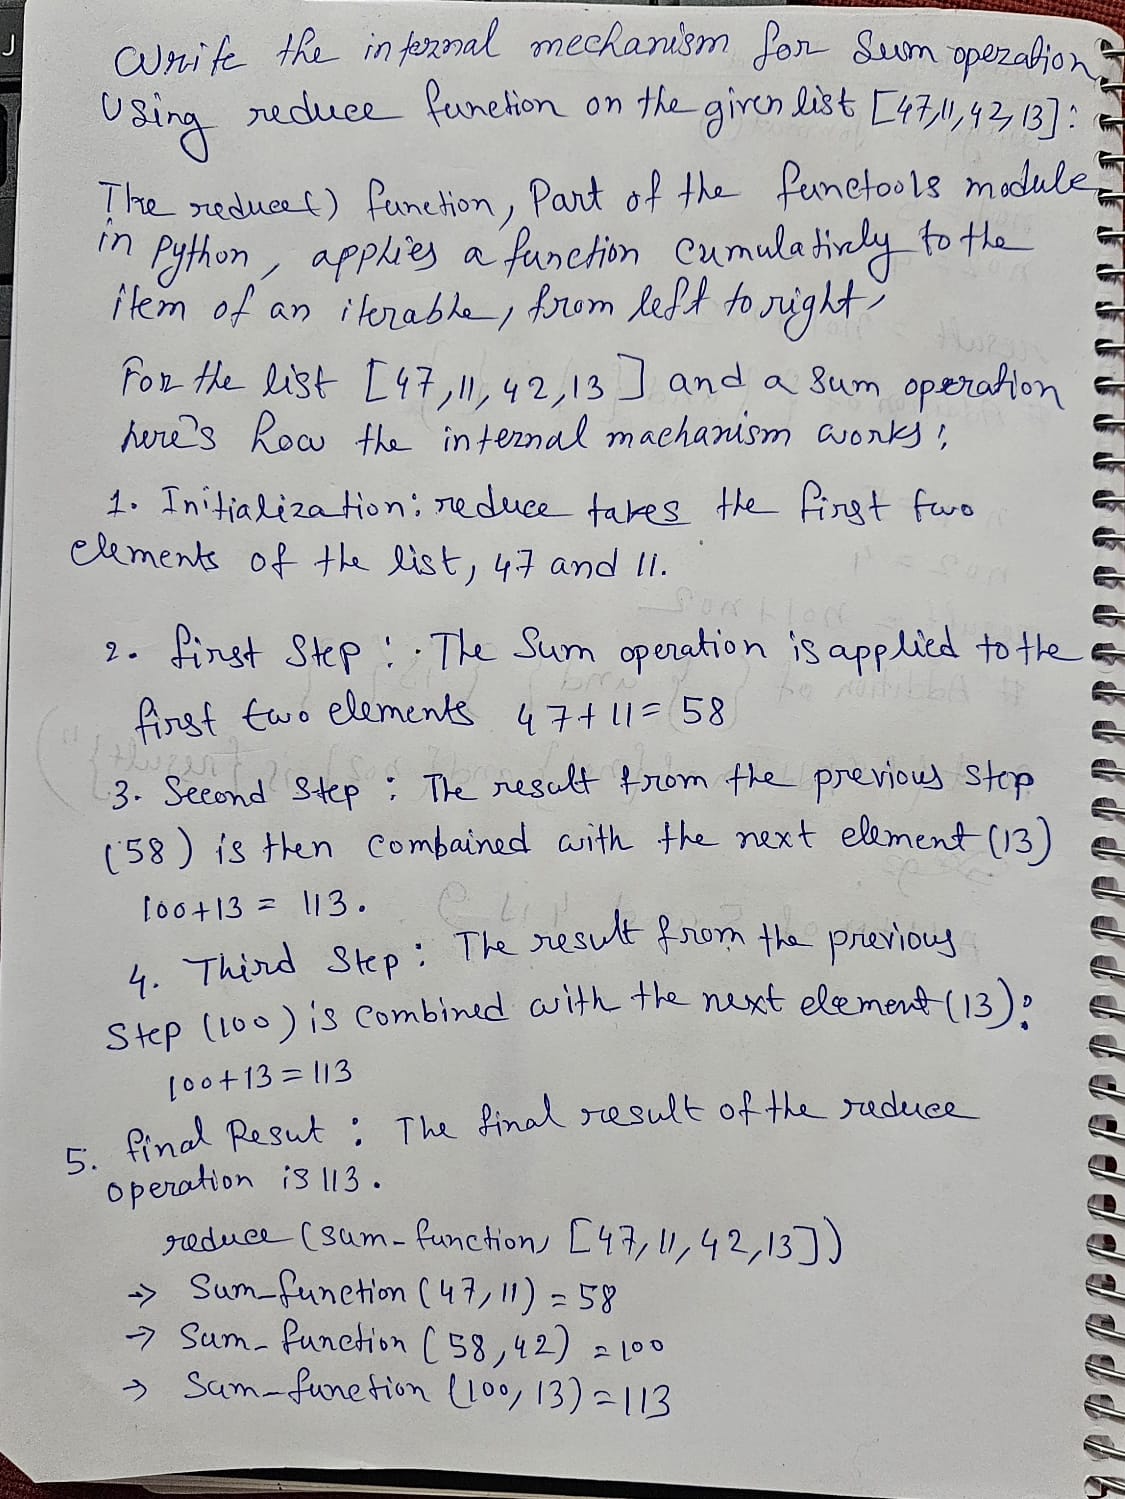 Write the internal mechanism for Sum operation
Using reduce function on the given list [47,11,42,13]:
The reduce() function, Part of the functools module
in Python, applies a function cumulatively to the
item of an iterable, from left to right,
For the list [47,11,42,13] and a sum operation
here's how the internal machanism works:
1. Initialization: reduce takes the first two
elements of the list, 47 and 11.
2. first Step: The Sum operation is applied to the
first two elements 47+11=58
3. Second Step: The result from the previous step
(58) is then combained with the next element (13)
100+13 = 113.
4. Third Step: The result from the previous
Step (100) is combined with the next element (13):
100+13=113
5. final Resut: The final result of the reduce
operation is 113.
reduce (sum-function, [47,11,42,13])
→ Sum-function (47,11) = 58
→ Sum-function (58,42) = 100
→ Sum-function (100,13) = 113